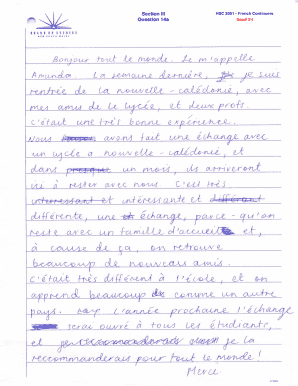 BOARD OF STUDIES
NEW SOUTH WALES
Section III
Question 14a
HSC 2001 - French Continuers
Band 3/4
Bonjour tout le monde. Je m'appelle
Amanda. La semaine dernière, je suis
rentrée de la nouvelle-calédonie, avec
mes amis de la lycée, et deux profs.
C'était une très bonne expérience.
Nous avons fait une échange avec
un lycée a nouvelle-calédonie, et
dans un mois, ils arriveront
ici à rester avec nous. C'est très
interessant et intéressante et différent
différente, une échange, parce-qu'on
reste avec un famille d'accueil et,
à cause de ça, on retrouve
beaucoup de nouveaux amis.
C'était très différent à l'école, et on
apprend beaucoup de comme un autre
pays. L'année prochaine l'échange
serai ouvré à tous les étudiants,
et je la
reccommanderais pour tout le monde!
Merci